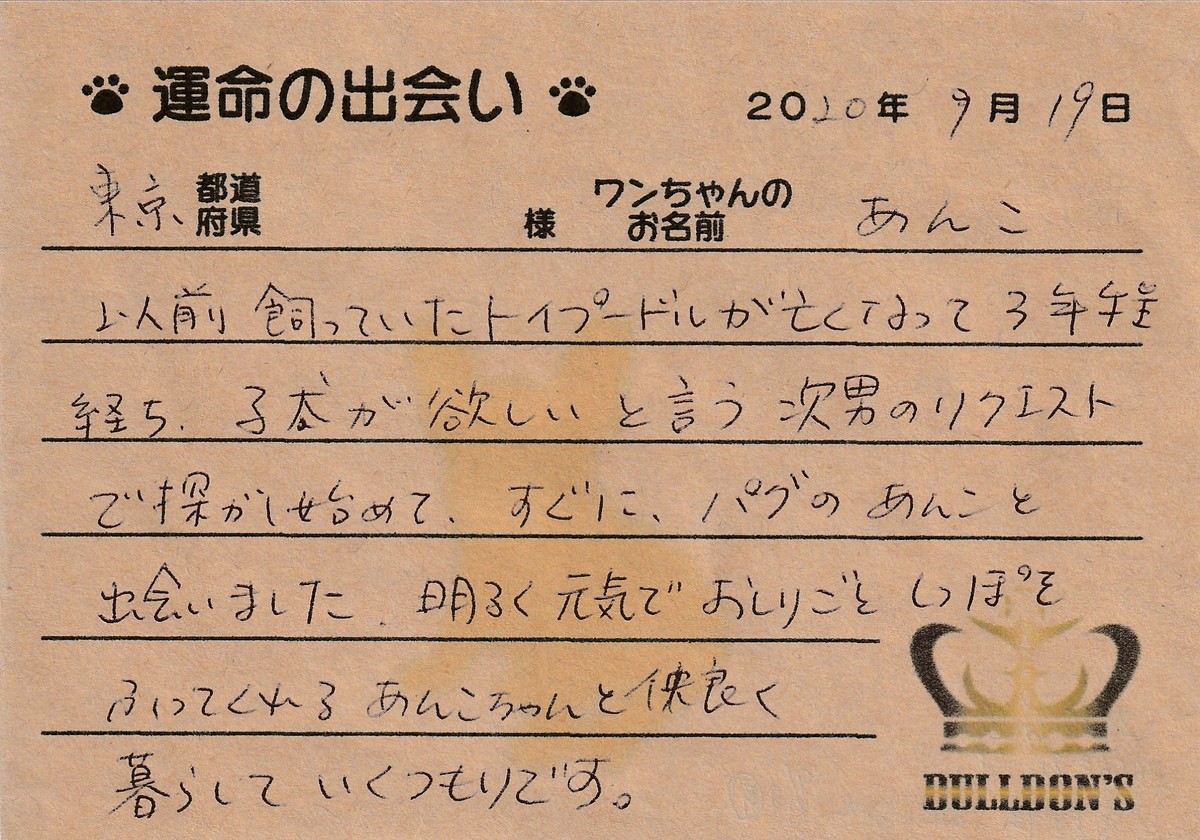 運命の出会い 2020年 9月 19日
東京 都道府県 様 ワンちゃんのお名前 あんこ
以前 飼っていたトイプードルが亡くなって 3年程
経ち、子犬が欲しいと言う次男のリクエスト
で探がし始めて、すぐに、パグのあんこと
出会いました。明るく元気でおしりごとしっぽを
ふってくれるあんこちゃんと仲良く
暮らしていくつもりです。
BULLDON'S